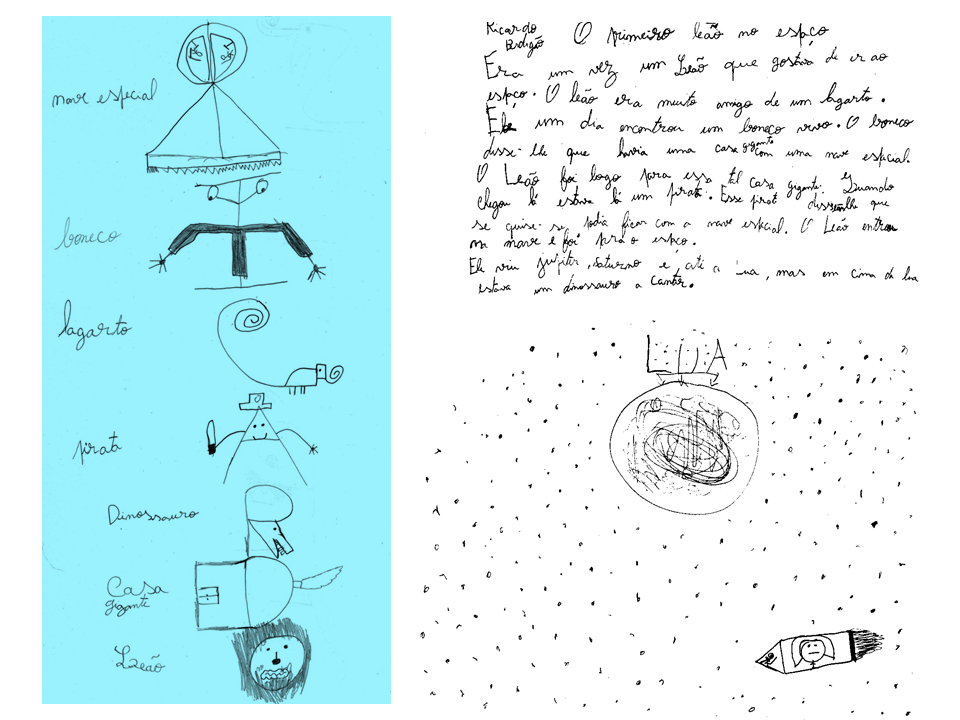 nave espacial
boneco
lagarto
pirata
Dinossauro
Casa
gigante
Leão
Ricardo
O primeiro leão no espço
Era um vez um Leão que gostava de ir ao
espço. O leão era muito amigo de um lagarto.
Ele um dia encontrou um boneco vivo. O boneco
disse-lhe que havia uma casa gigante com uma nave espacial.
O Leão foi logo para essa tal casa gigante. Quando
chegou lá estava lá um pirata. Esse pirat disse-lhe que
se quise-se podia ficar com a nave espcial. O Leão entrou
na nave e foi para o espço.
Ele viu jupiter, saturno e, até a lua, mas em cima da lua
estava um dinossauro a cantar.
LUA